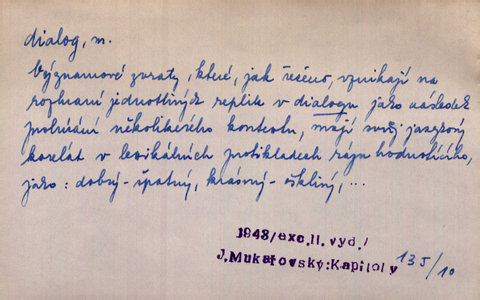 dialog, m.
Významové zvraty, které, jak řečeno, vznikají na
rozhraní jednotlivých replik v dialogu jako následek
prolínání několikerého kontextu, mají svůj jazykový
korelát v lexikálních protikladech rázu hodnotícího,
jako: dobrý - špatný, krásný - ošklivý, ...
1948/exc.II.vyd./
J.Mukařovský:Kapitoly
135/10